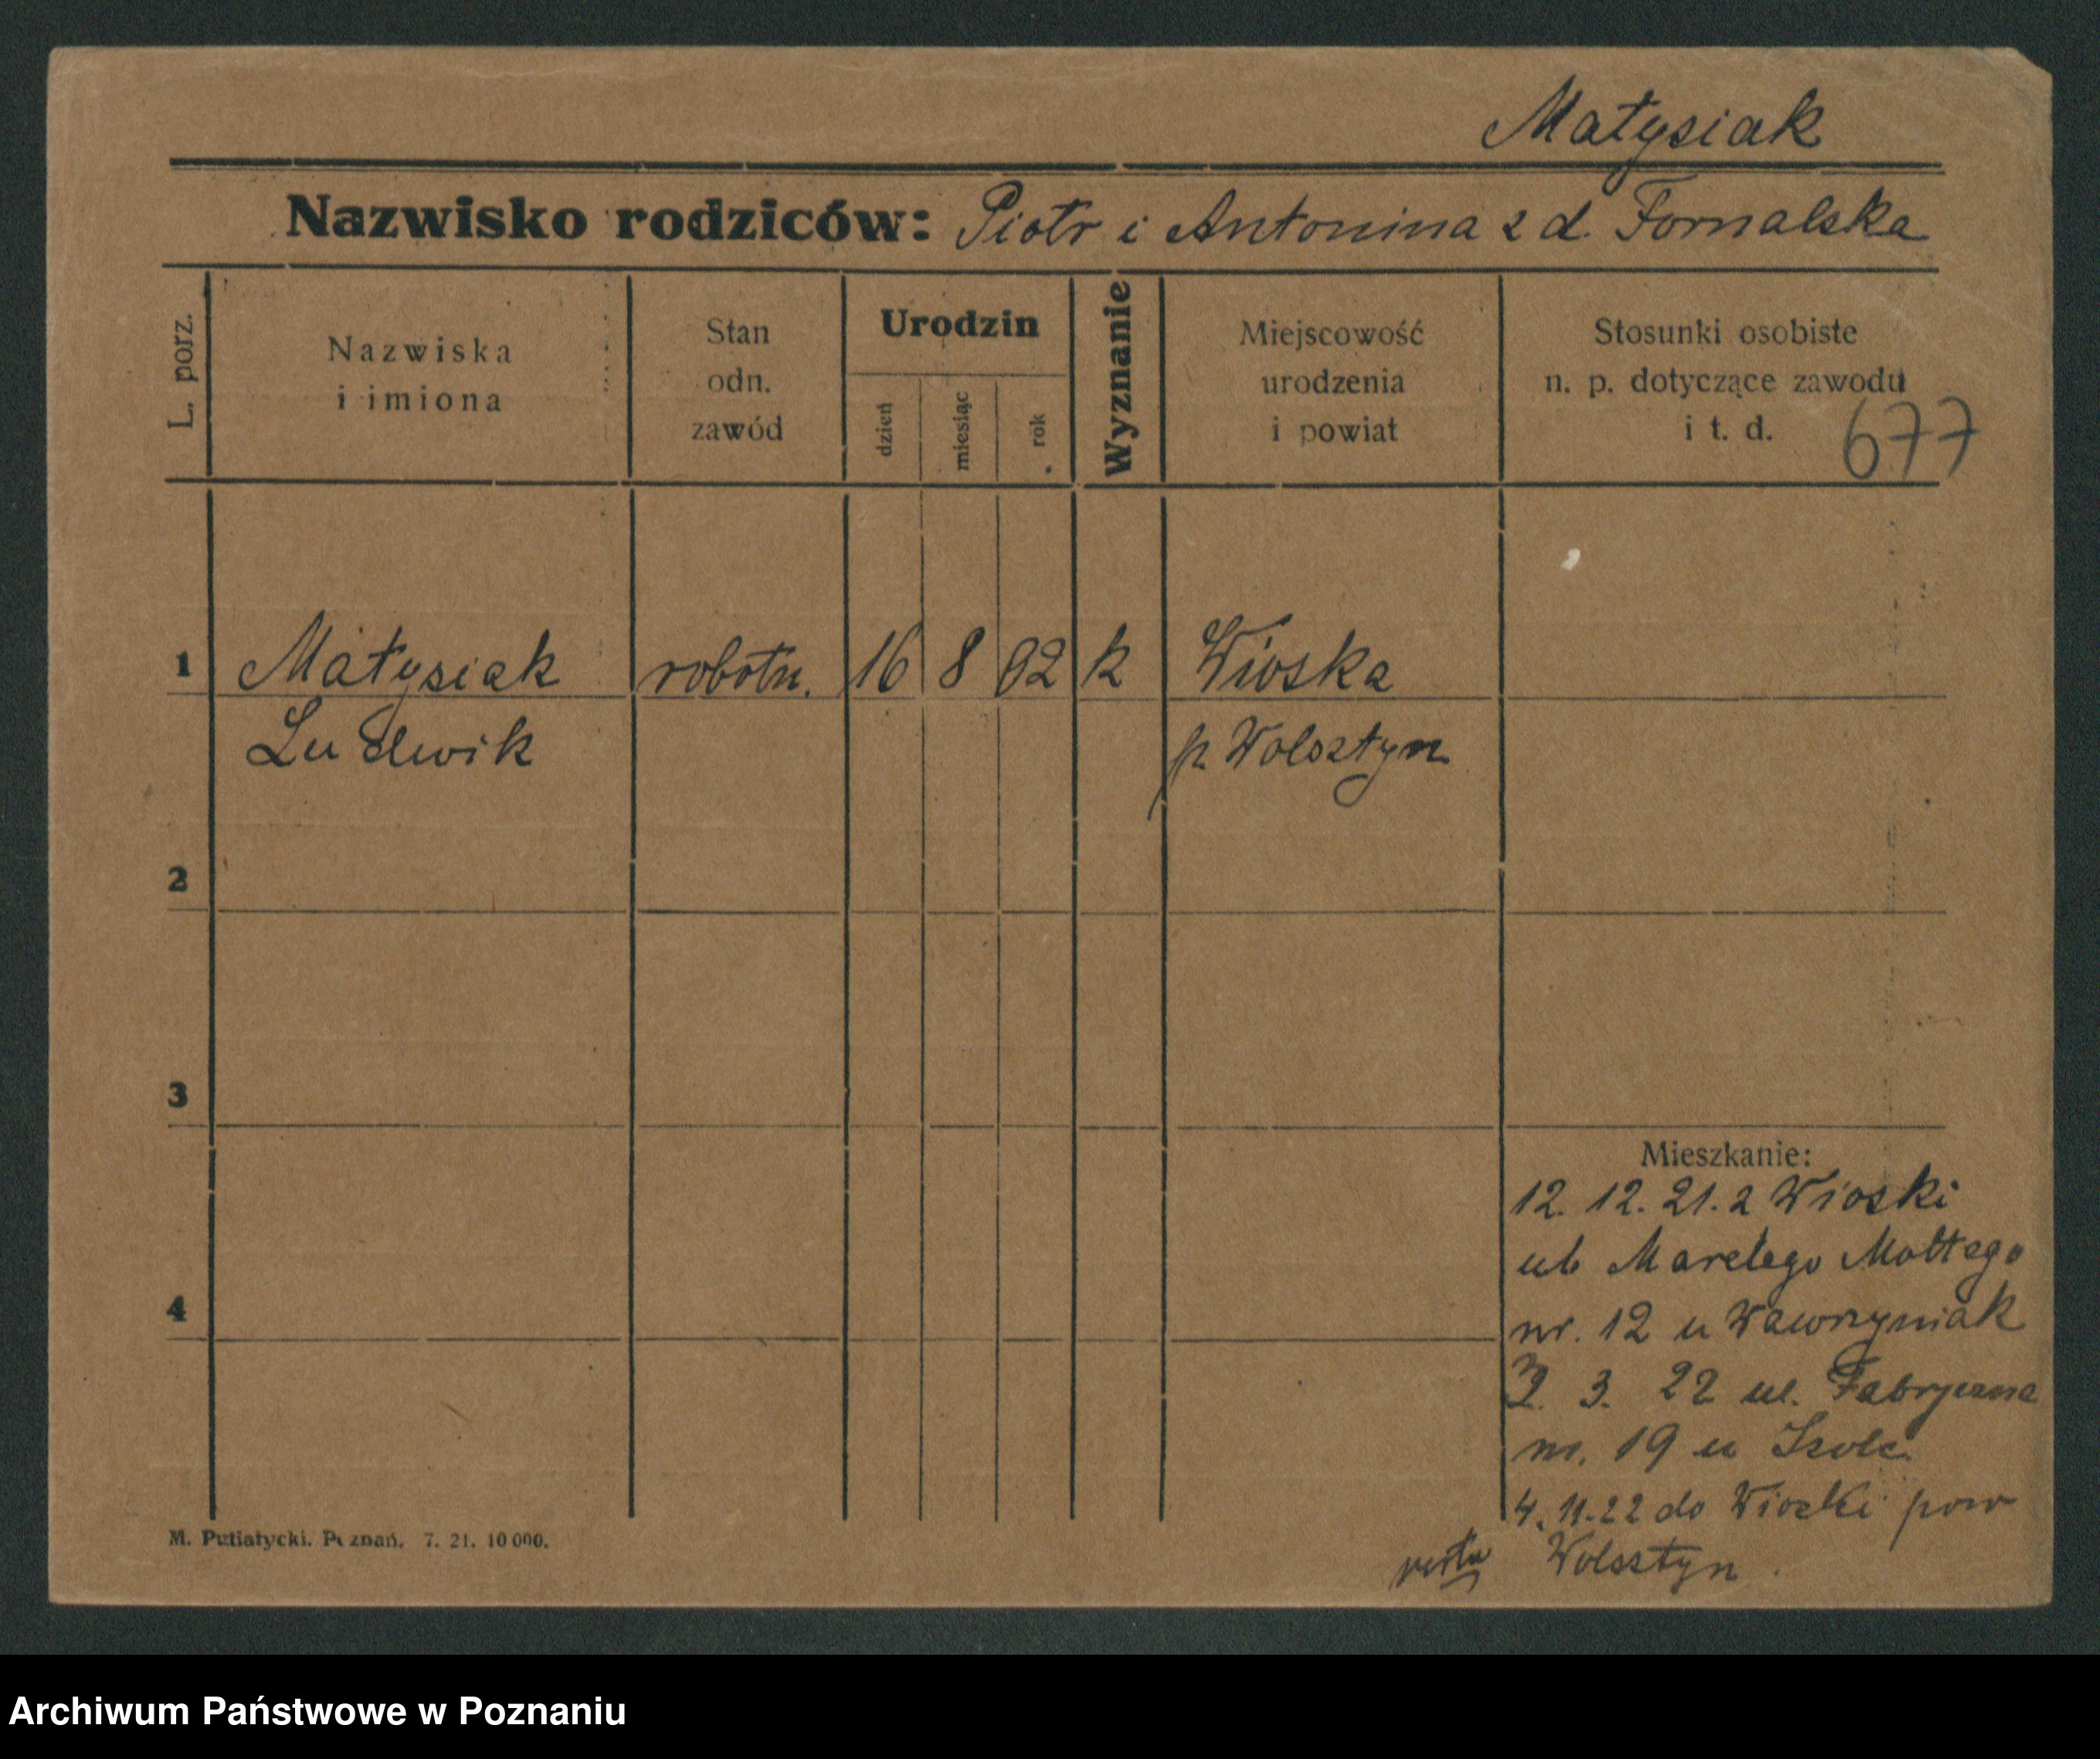 Matysiak
Nazwisko rodziców: Piotr i Antonina z d. Fornalska
L. porz.
Nazwiska
i imiona
Stan
odn.
zawód
Urodzin
dzień
miesiąc
rok
Wyznanie
Miejscowość
urodzenia
i powiat
Stosunki osobiste
n. p. dotyczące zawodu
i t. d.
677
1 Matysiak robotn. 16 8 02 k Wioska
Ludwik p. Wolsztyn
2
3
4
Mieszkanie:
12. 12. 21. z Wioski
ul. Marelego Mottego
nr. 12 u Wawrzyniak
3. 22 ul. Fabryczna
nr. 19 u
4. 11. 22 do Wioski pow
Wolsztyn
M. Putiatycki. Poznań. 7. 21. 10 000.
Archiwum Państwowe w Poznaniu